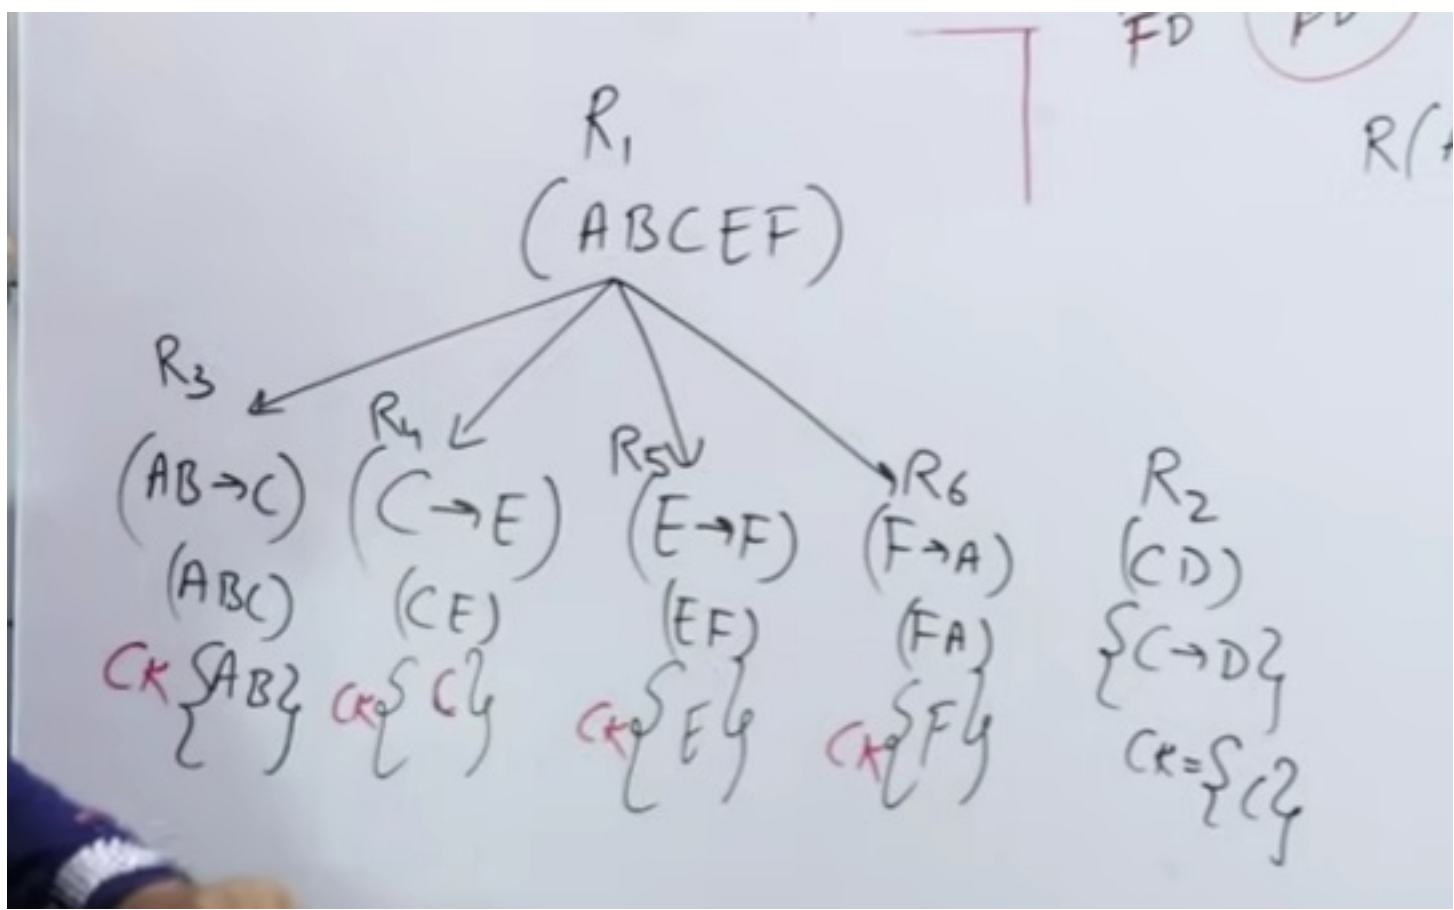 FD
R(
R1
(ABCEF)
R3
(AB→C)
(ABC)
CK {AB}
R4
(C→E)
(CE)
CK{C}
R5
(E→F)
(EF)
CK{E}
R6
(F→A)
(FA)
CK{F}
R2
(CD)
{C→D}
CK={C}